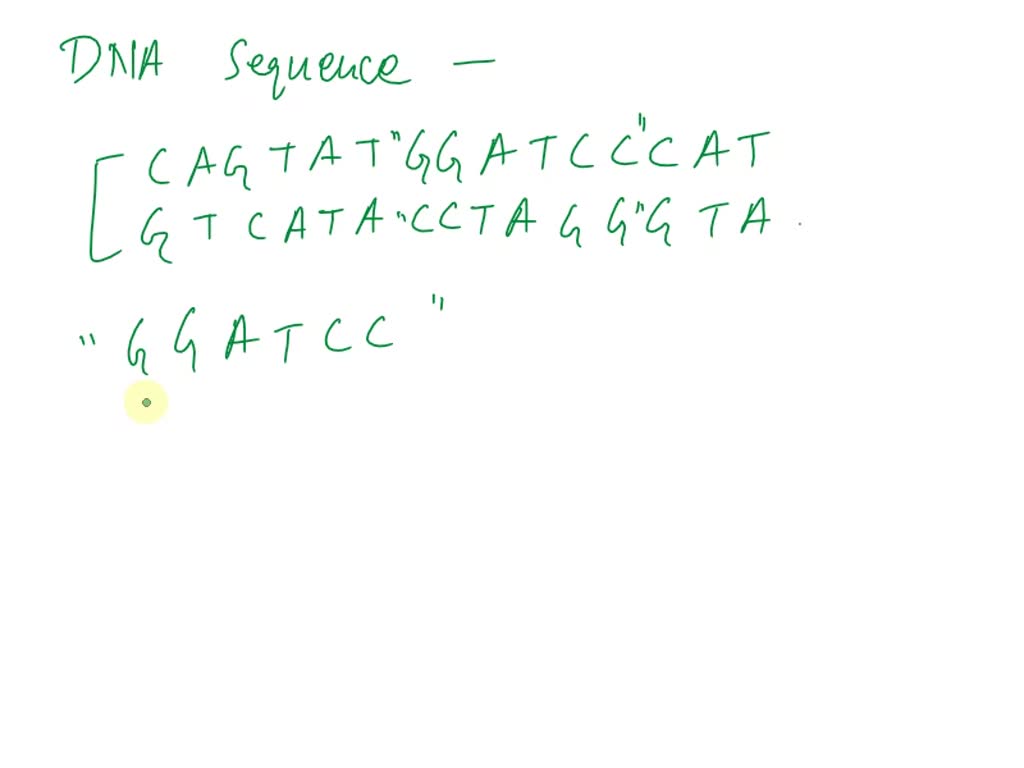 DNA Sequence —
C A G T A T "G G A T C C" C A T
G T C A T A "C C T A G G" G T A .
" G G A T C C "